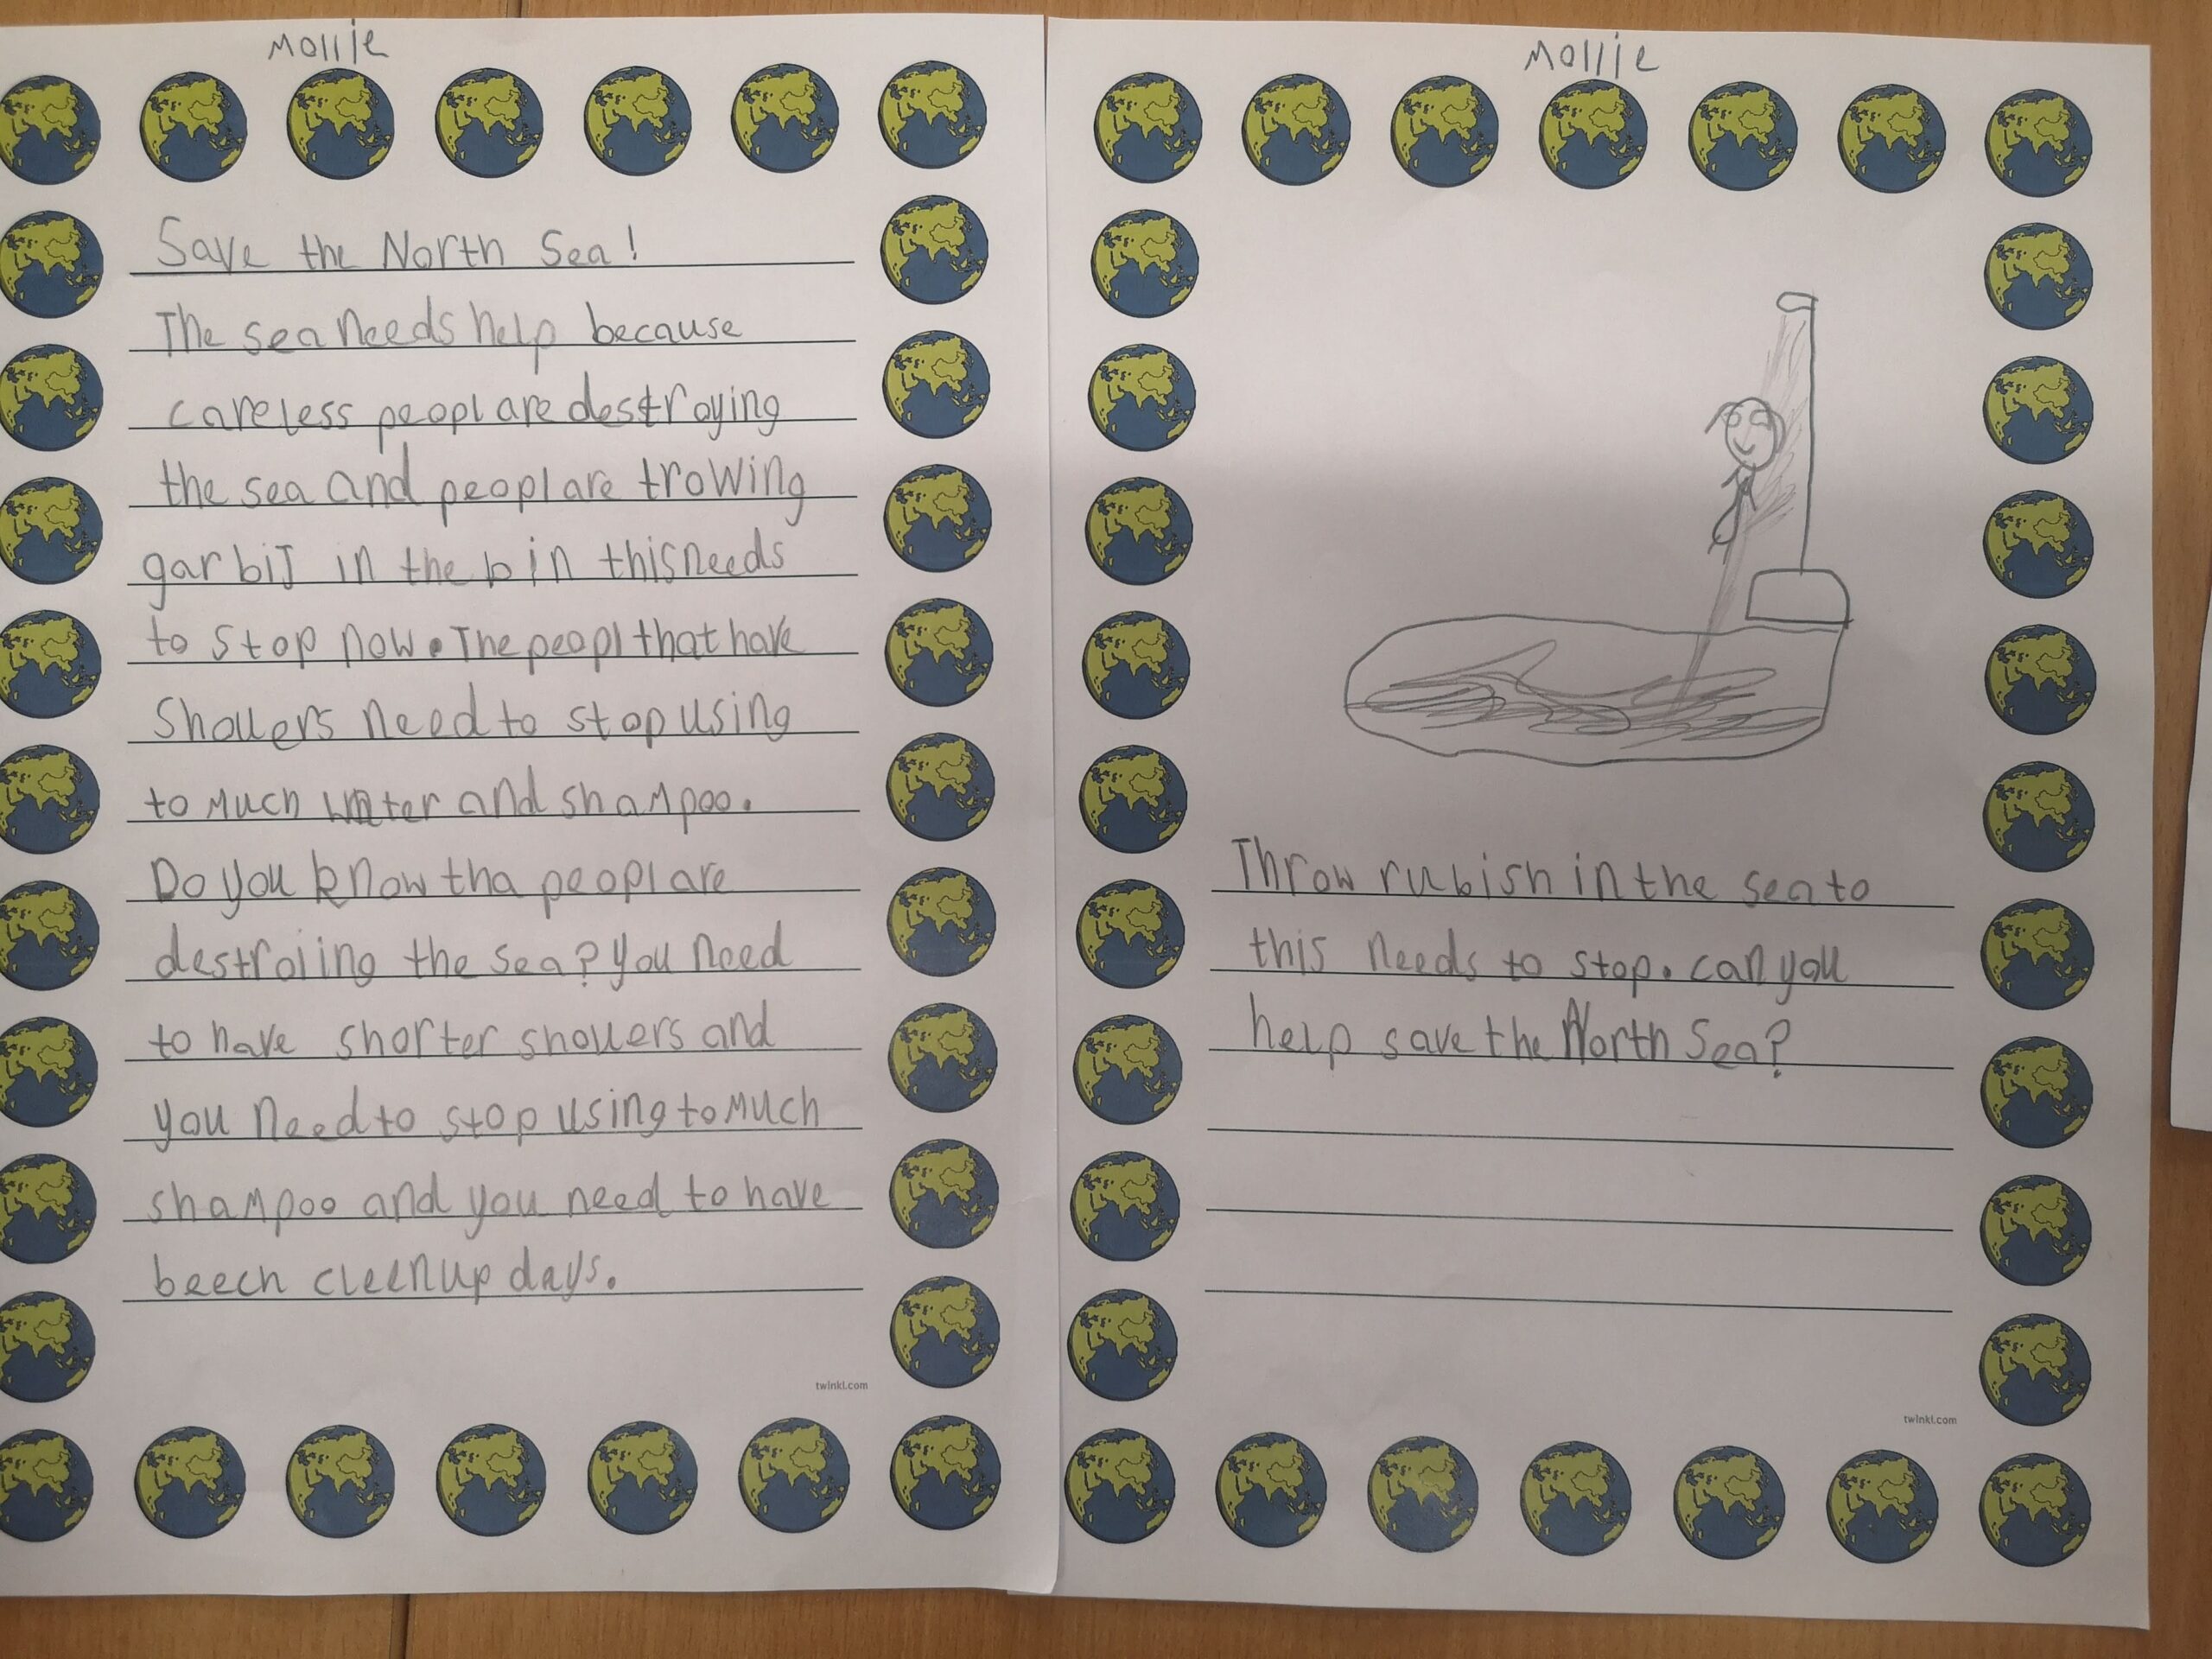 Mollie
Save the North Sea!
The sea needs help because
careless peopl are destroying
the sea and peopl are trowing
garbij in the bin this needs
to stop now. The peopl that have
shouers need to stop using
to much water and shampoo.
Do you know tha peopl are
destroiing the sea? you need
to have shorter shouers and
you need to stop using to much
shampoo and you need to have
beech cleenup days.
twinkl.com
Mollie
Throw rubish in the sea to
this needs to stop. can you
help save the North Sea?
twinkl.com